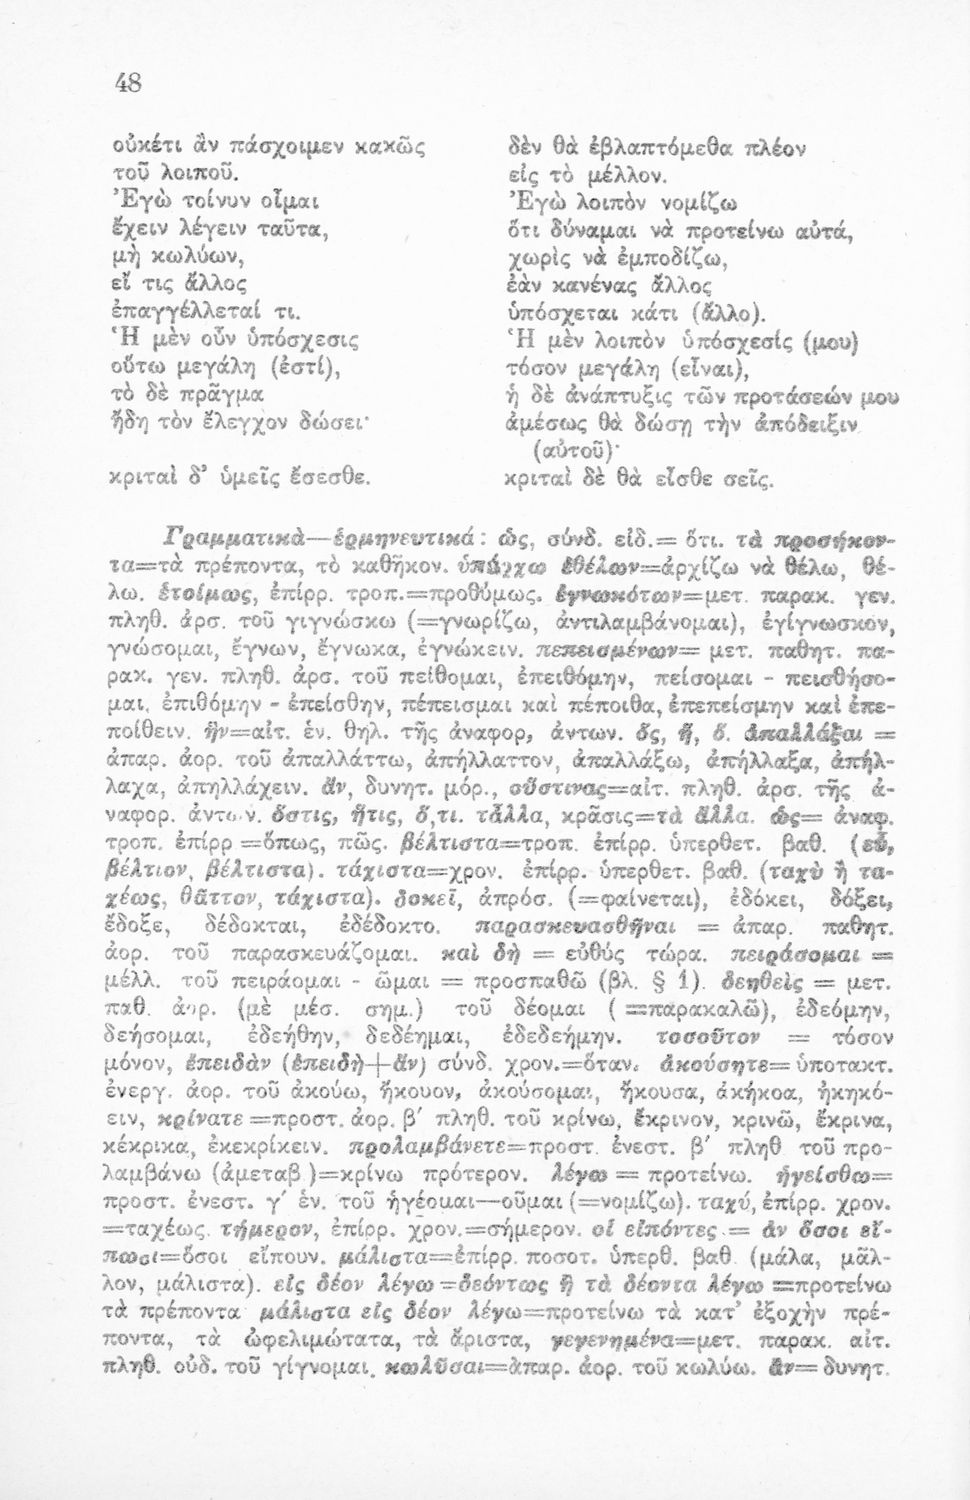 48
οὐκέτι ἂν πάσχοιμεν κακῶς
τοῦ λοιποῦ.
Ἐγὼ τοίνυν οἶμαι
ἔχειν λέγειν ταῦτα,
μὴ κωλύων,
εἴ τις ἄλλος
ἐπαγγέλλεταί τι.
Ἡ μὲν οὖν ὑπόσχεσις
οὕτω μεγάλη (ἐστί),
τὸ δὲ πρᾶγμα
ἤδη τὸν ἔλεγχον δώσει·
κριταὶ δ’ ὑμεῖς ἔσεσθε.
δὲν θὰ ἐβλαπτόμεθα πλέον
εἰς τὸ μέλλον.
Ἐγὼ λοιπὸν νομίζω
ὅτι δύναμαι νὰ προτείνω αὐτά,
χωρὶς νὰ ἐμποδίζω,
ἐὰν κανένας ἄλλος
ὑπόσχεται κάτι (ἄλλο).
Ἡ μὲν λοιπὸν ὑπόσχεσίς (μου)
τόσον μεγάλη (εἶναι),
ἡ δὲ ἀνάπτυξις τῶν προτάσεών μου
ἀμέσως θὰ δώσῃ τὴν ἀπόδειξιν
(αὐτοῦ)·
κριταὶ δὲ θὰ εἶσθε σεῖς.
Γραμματικὰ—ἑρμηνευτικά: ὡς, σύνδ. εἰδ.= ὅτι. τὰ προσήκον-
τα=τὰ πρέποντα, τὸ καθῆκον. ὑπάρχω ἐθέλων=ἀρχίζω νὰ θέλω, θέ-
λω. ἑτοίμως, ἐπίρρ. τροπ.=προθύμως. ἐγνωκότων=μετ. παρακ. γεν.
πληθ. ἀρσ. τοῦ γιγνώσκω (=γνωρίζω, ἀντιλαμβάνομαι), ἐγίγνωσκον,
γνώσομαι, ἔγνων, ἔγνωκα, ἐγνώκειν. πεπεισμένων= μετ. παθητ. πα-
ρακ. γεν. πληθ. ἀρσ. τοῦ πείθομαι, ἐπειθόμην, πείσομαι - πεισθήσο-
μαι, ἐπιθόμην - ἐπείσθην, πέπεισμαι καὶ πέποιθα, ἐπεπείσμην καὶ ἐπε-
ποίθειν. ἣν=αἰτ. ἑν. θηλ. τῆς ἀναφορ, ἀντων. ὅς, ἥ, ὅ. ἀπαλλάξαι =
ἀπαρ. ἀορ. τοῦ ἀπαλλάττω, ἀπήλλαττον, ἀπαλλάξω, ἀπήλλαξα, ἀπήλ-
λαχα, ἀπηλλάχειν. ἄν, δυνητ. μόρ., οὕστινας=αἰτ. πληθ. ἀρσ. τῆς ἀ-
ναφορ. ἀντων. ὅστις, ἥτις, ὅ,τι. τἆλλα, κρᾶσις=τὰ ἄλλα. ὡς= ἀναφ.
τροπ. ἐπίρρ =ὅπως, πῶς. βέλτιστα=τροπ. ἐπίρρ. ὑπερθετ. βαθ. (εὖ,
βέλτιον, βέλτιστα). τάχιστα=χρον. ἐπίρρ. ὑπερθετ. βαθ. (ταχὺ ἢ τα-
χέως, θᾶττον, τάχιστα). δοκεῖ, ἀπρόσ. (=φαίνεται), ἐδόκει, δόξει,
ἔδοξε, δέδοκται, ἐδέδοκτο. παρασκευασθῆναι = ἀπαρ. παθητ.
ἀορ. τοῦ παρασκευάζομαι. καὶ δὴ = εὐθύς τώρα. πειράσομαι =
μέλλ. τοῦ πειράομαι - ῶμαι = προσπαθῶ (βλ. § 1). δεηθεὶς = μετ.
παθ. ἀορ. (μὲ μέσ. σημ.) τοῦ δέομαι (=παρακαλῶ), ἐδεόμην,
δεήσομαι, ἐδεήθην, δεδέημαι, ἐδεδεήμην. τοσοῦτον = τόσον
μόνον, ἐπειδὰν (ἐπειδὴ+ἂν) σύνδ. χρον.=ὅταν. ἀκούσητε= ὑποτακτ.
ἐνεργ. ἀορ. τοῦ ἀκούω, ἤκουον, ἀκούσομαι, ἤκουσα, ἀκήκοα, ἠκηκό-
ειν, κρίνατε =προστ. ἀορ. β′ πληθ. τοῦ κρίνω, ἔκρινον, κρινῶ, ἔκρινα,
κέκρικα, ἐκεκρίκειν. προλαμβάνετε=προστ. ἐνεστ. β′ πληθ τοῦ προ-
λαμβάνω (ἀμεταβ )=κρίνω πρότερον. λέγω = προτείνω. ἡγείσθω=
προστ. ἐνεστ. γ′ ἑν. τοῦ ἡγέομαι—οῦμαι (=νομίζω). ταχύ, ἐπίρρ. χρον.
=ταχέως. τήμερον, ἐπίρρ. χρον.=σήμερον. οἱ εἰπόντες = ἂν ὅσοι εἴ-
πωσι=ὅσοι εἴπουν. μάλιστα=ἐπίρρ. ποσοτ. ὑπερθ. βαθ (μάλα, μᾶλ-
λον, μάλιστα). εἰς δέον λέγω =δεόντως ἢ τὰ δέοντα λέγω =προτείνω
τὰ πρέποντα μάλιστα εἰς δέον λέγω=προτείνω τὰ κατ’ ἐξοχὴν πρέ-
ποντα, τὰ ὠφελιμώτατα, τὰ ἄριστα, γεγενημένα=μετ. παρακ. αἰτ.
πληθ. οὐδ. τοῦ γίγνομαι. κωλῦσαι=ἀπαρ. ἀορ. τοῦ κωλύω. ἂν= δυνητ.